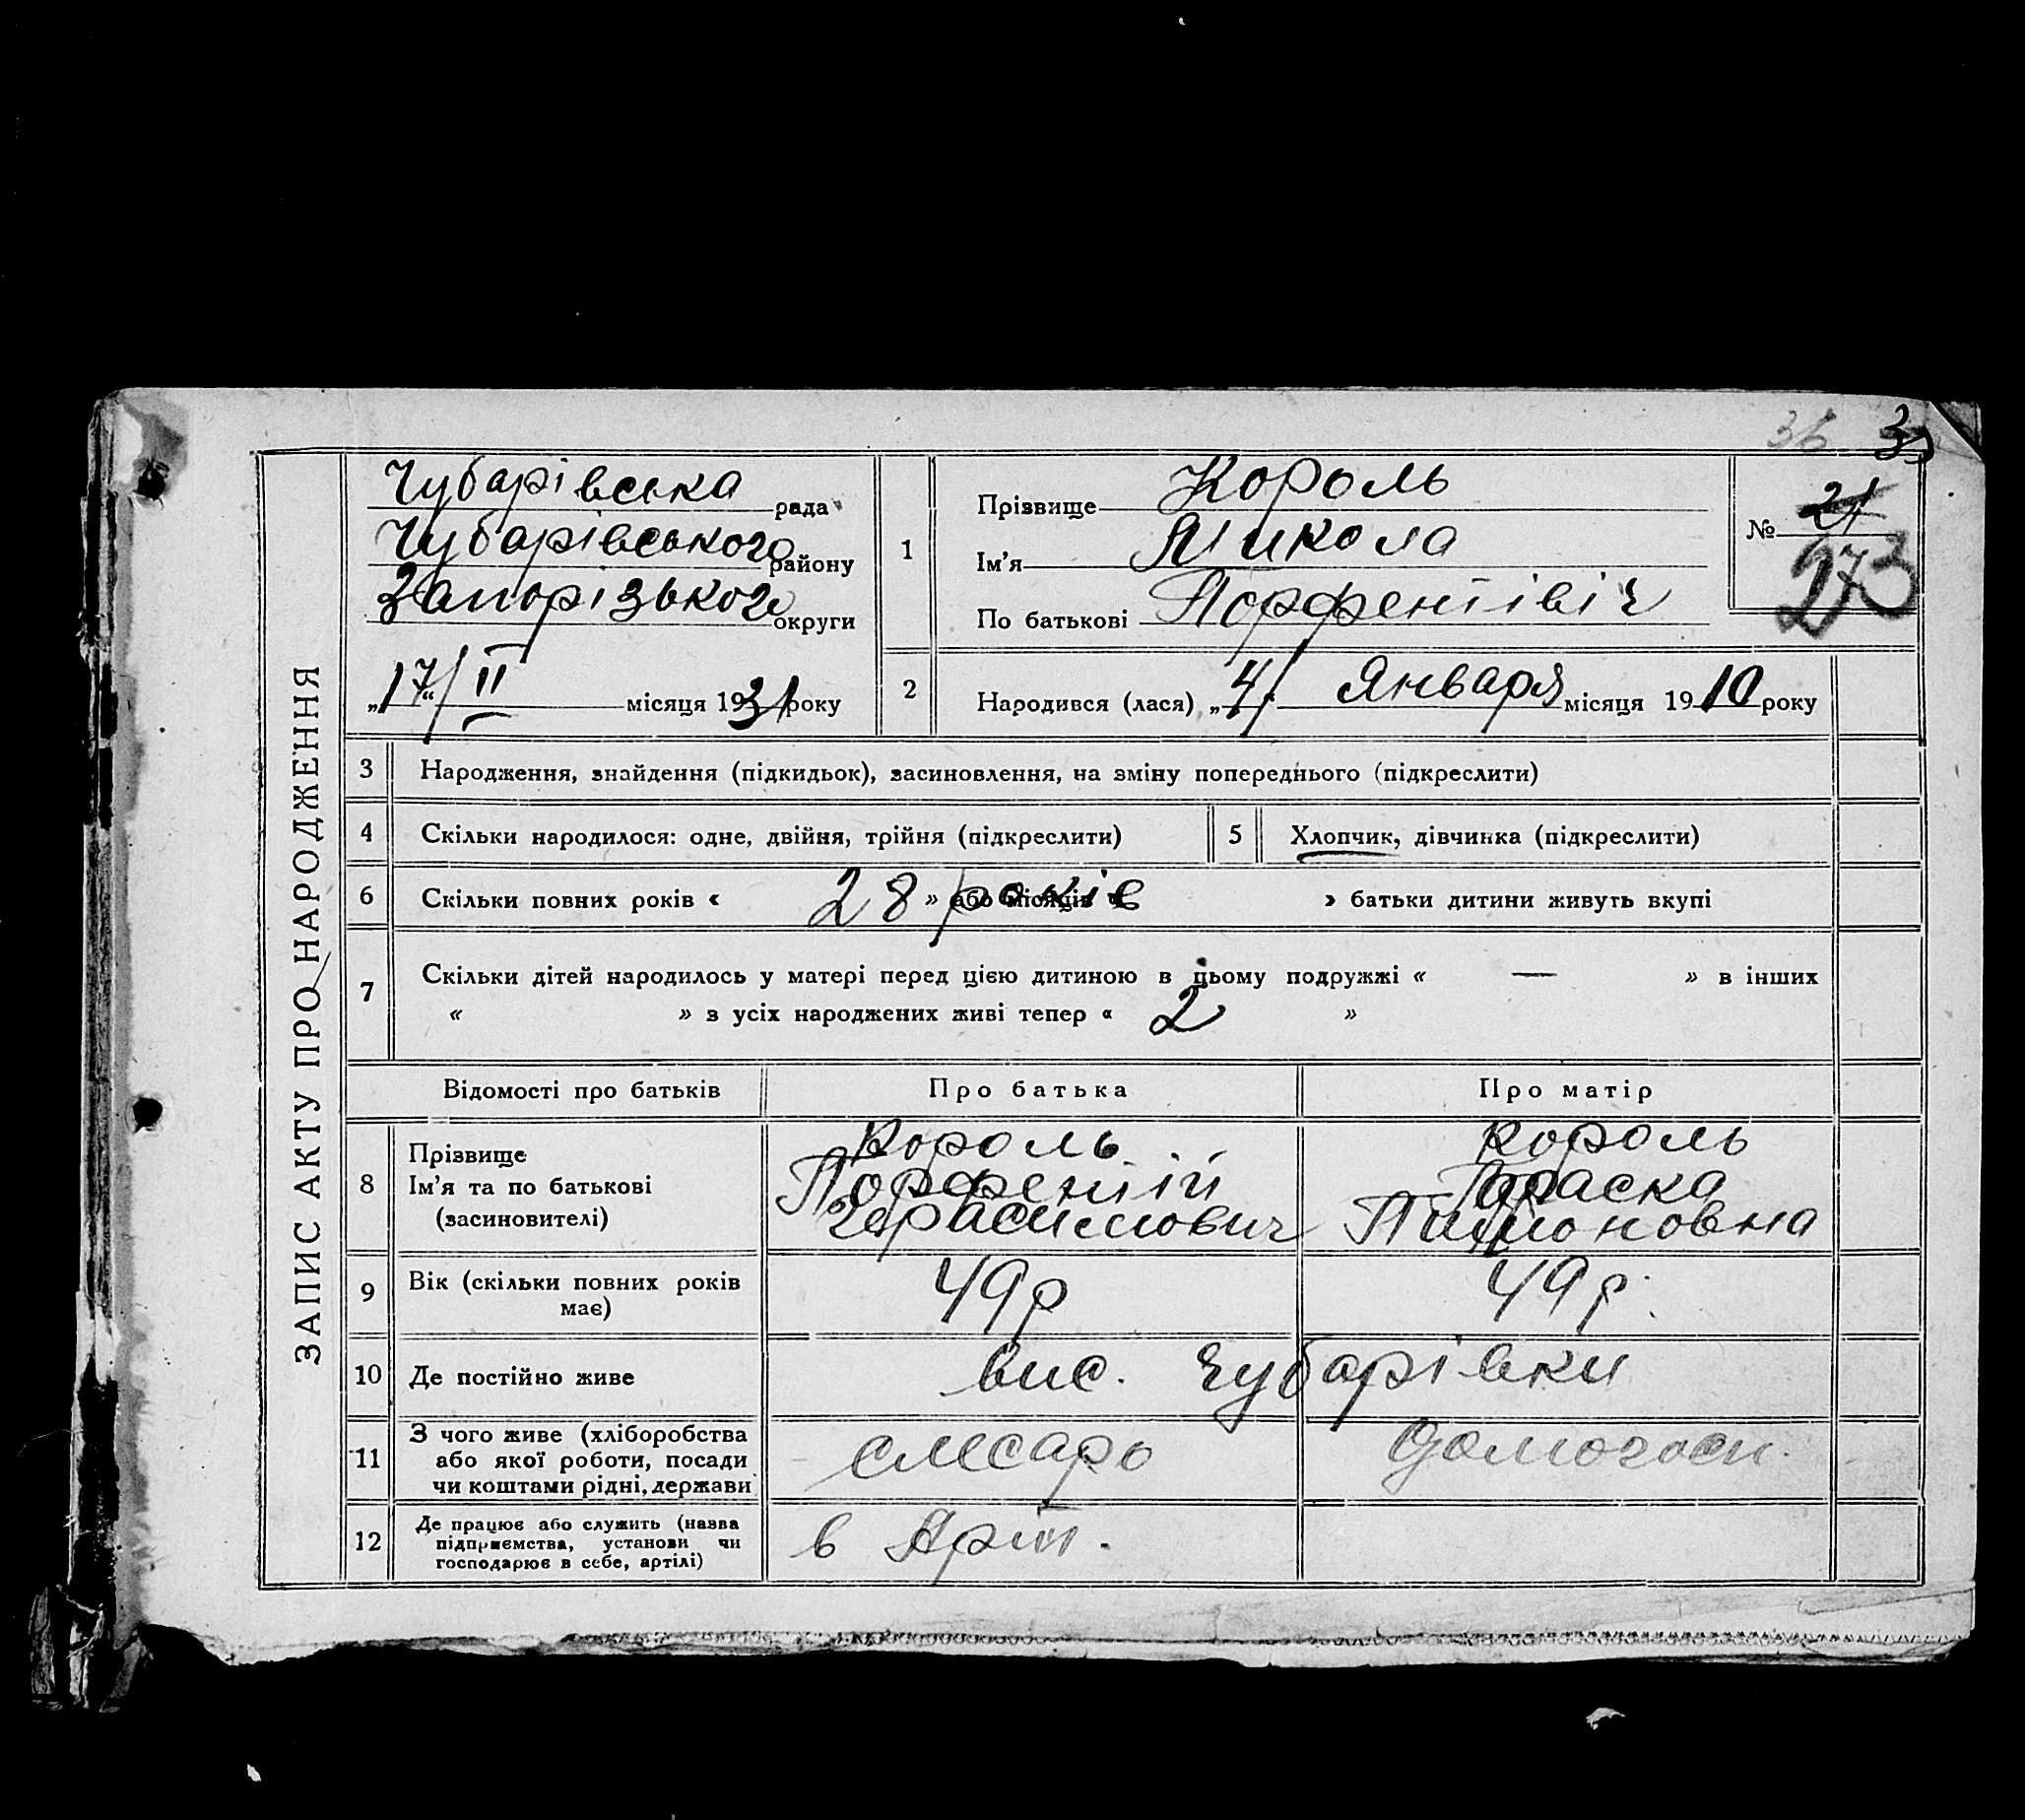 36 33
ЗАПИС АКТУ ПРО НАРОДЖЕННЯ
Чубарівська рада
Чубарівського району
Запорізького округи
„17“/II місяця 1931 року
1
Прізвище Король
Ім'я Микола
По батькові Порфентівіч
№ 21
273
2 Народився (лася) „4/ Января місяця 1910 року
3 Народження, знайдення (підкидьок), засиновлення, на зміну попереднього (підкреслити)
4 Скільки народилося: одне, двійня, трійня (підкреслити)
5 Хлопчик, дівчинка (підкреслити)
6 Скільки повних років « 28 » або місяців « років » батьки дитини живуть вкупі
7 Скільки дітей народилось у матері перед цією дитиною в цьому подружжі « — » в інших
« » з усіх народжених живі тепер « 2 »
Відомості про батьків Про батька Про матір
8 Прізвище
Ім'я та по батькові
(засиновителі)
Король
Порфентій
Герасимович
Король
Параска
9 Вік (скільки повних років
має)
49 р
49 р.
10 Де постійно живе вис. Чубарівки
11 З чого живе (хліборобства
або якої роботи, посади
чи коштами рідні, держави
слесарь
домогосп.
12 Де працює або служить (назва
підприємства, установи чи
господарює в себе, артілі)
в Арт.